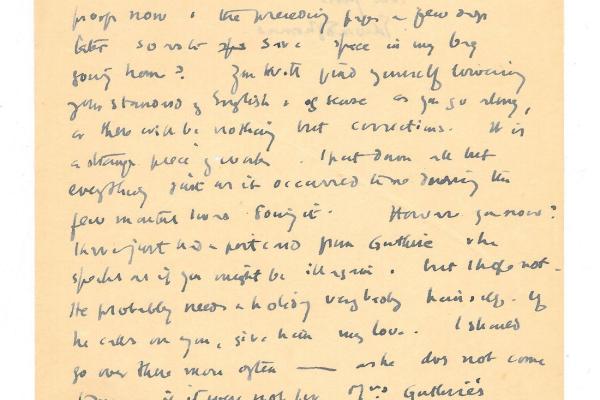 proofs now & the preceding pages a few days
later so as to save space in my bag
going home? You will find yourself lowering
your standard of English & of sense as you go along,
or there will be nothing but corrections. It is
a strange piece of work. I put down all but
everything just as it occurred to me during the
few months I was doing it. How are you now?
I have just had a postcard from Guthrie & he
speaks as if you might be ill again. but I hope not.
He probably needs a holiday very badly himself. If
he calls on you, give him my love. I should
go over there more often — as he does not come
if it were not for Mrs Guthrie's